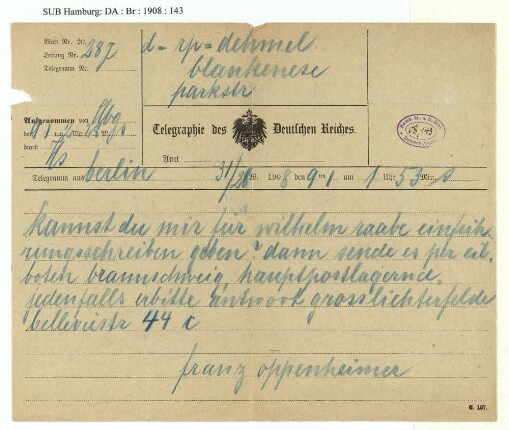 SUB Hamburg: DA : Br : 1908 : 143
Blatt Nr. 20
Leitung Nr. 287
Telegramm Nr.
d = rp = dehmel
blankenese
parkstr
Aufgenommen von Hbg
den
durch
Telegraphie des Deutschen Reiches.
Amt
Telegramm aus berlin 31/28 W. 1908 den 9/1 um 1 Uhr 53 Min. s
kannst du mir für wilhelm raabe einfüh
rungsschreiben geben? dann sende es per eil
boten braunschweig hauptpostlagernd.
jedenfalls erbitte antwort grosslichterfelde
bellevuestr 44 c
franz oppenheimer
C. 187.